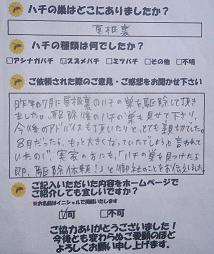 ハチの巣はどこにありましたか?
屋根裏
ハチの種類は何でしたか?
□アシナガバチ ☑スズメバチ □ミツバチ □その他 □不明
ご依頼された際のご意見・ご感想をお聞かせ下さい
昨年の7月に屋根裏のハチの巣を駆除して頂き
ました。駆除後のハチの巣を見せて下さり、
今後のアドバイスも頂いたりと、とても親切でした。
8月だったら、もっと大きくなっていたでしょうと言われて
いたので、実家の方にも、「ハチの巣を見つけたら
即、駆除依頼!」と御社のことをお伝えした
ご記入いただいた内容をホームページで
ご紹介しても宜しいですか?
※お名前はイニシャルで掲載いたします
☑可 □不可
ご協力ありがとうございました!
今後とも変わらぬご愛顧のほど
よろしくお願い申し上げます。